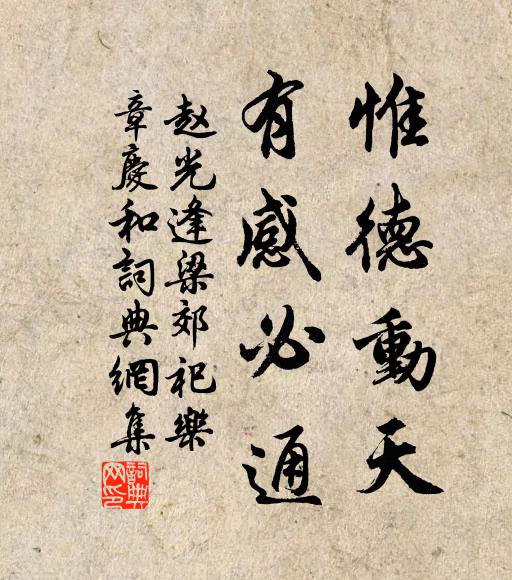 惟德動天
有感必通
赵光逢梁郊祀樂
章慶和詞典網集
詞典網印